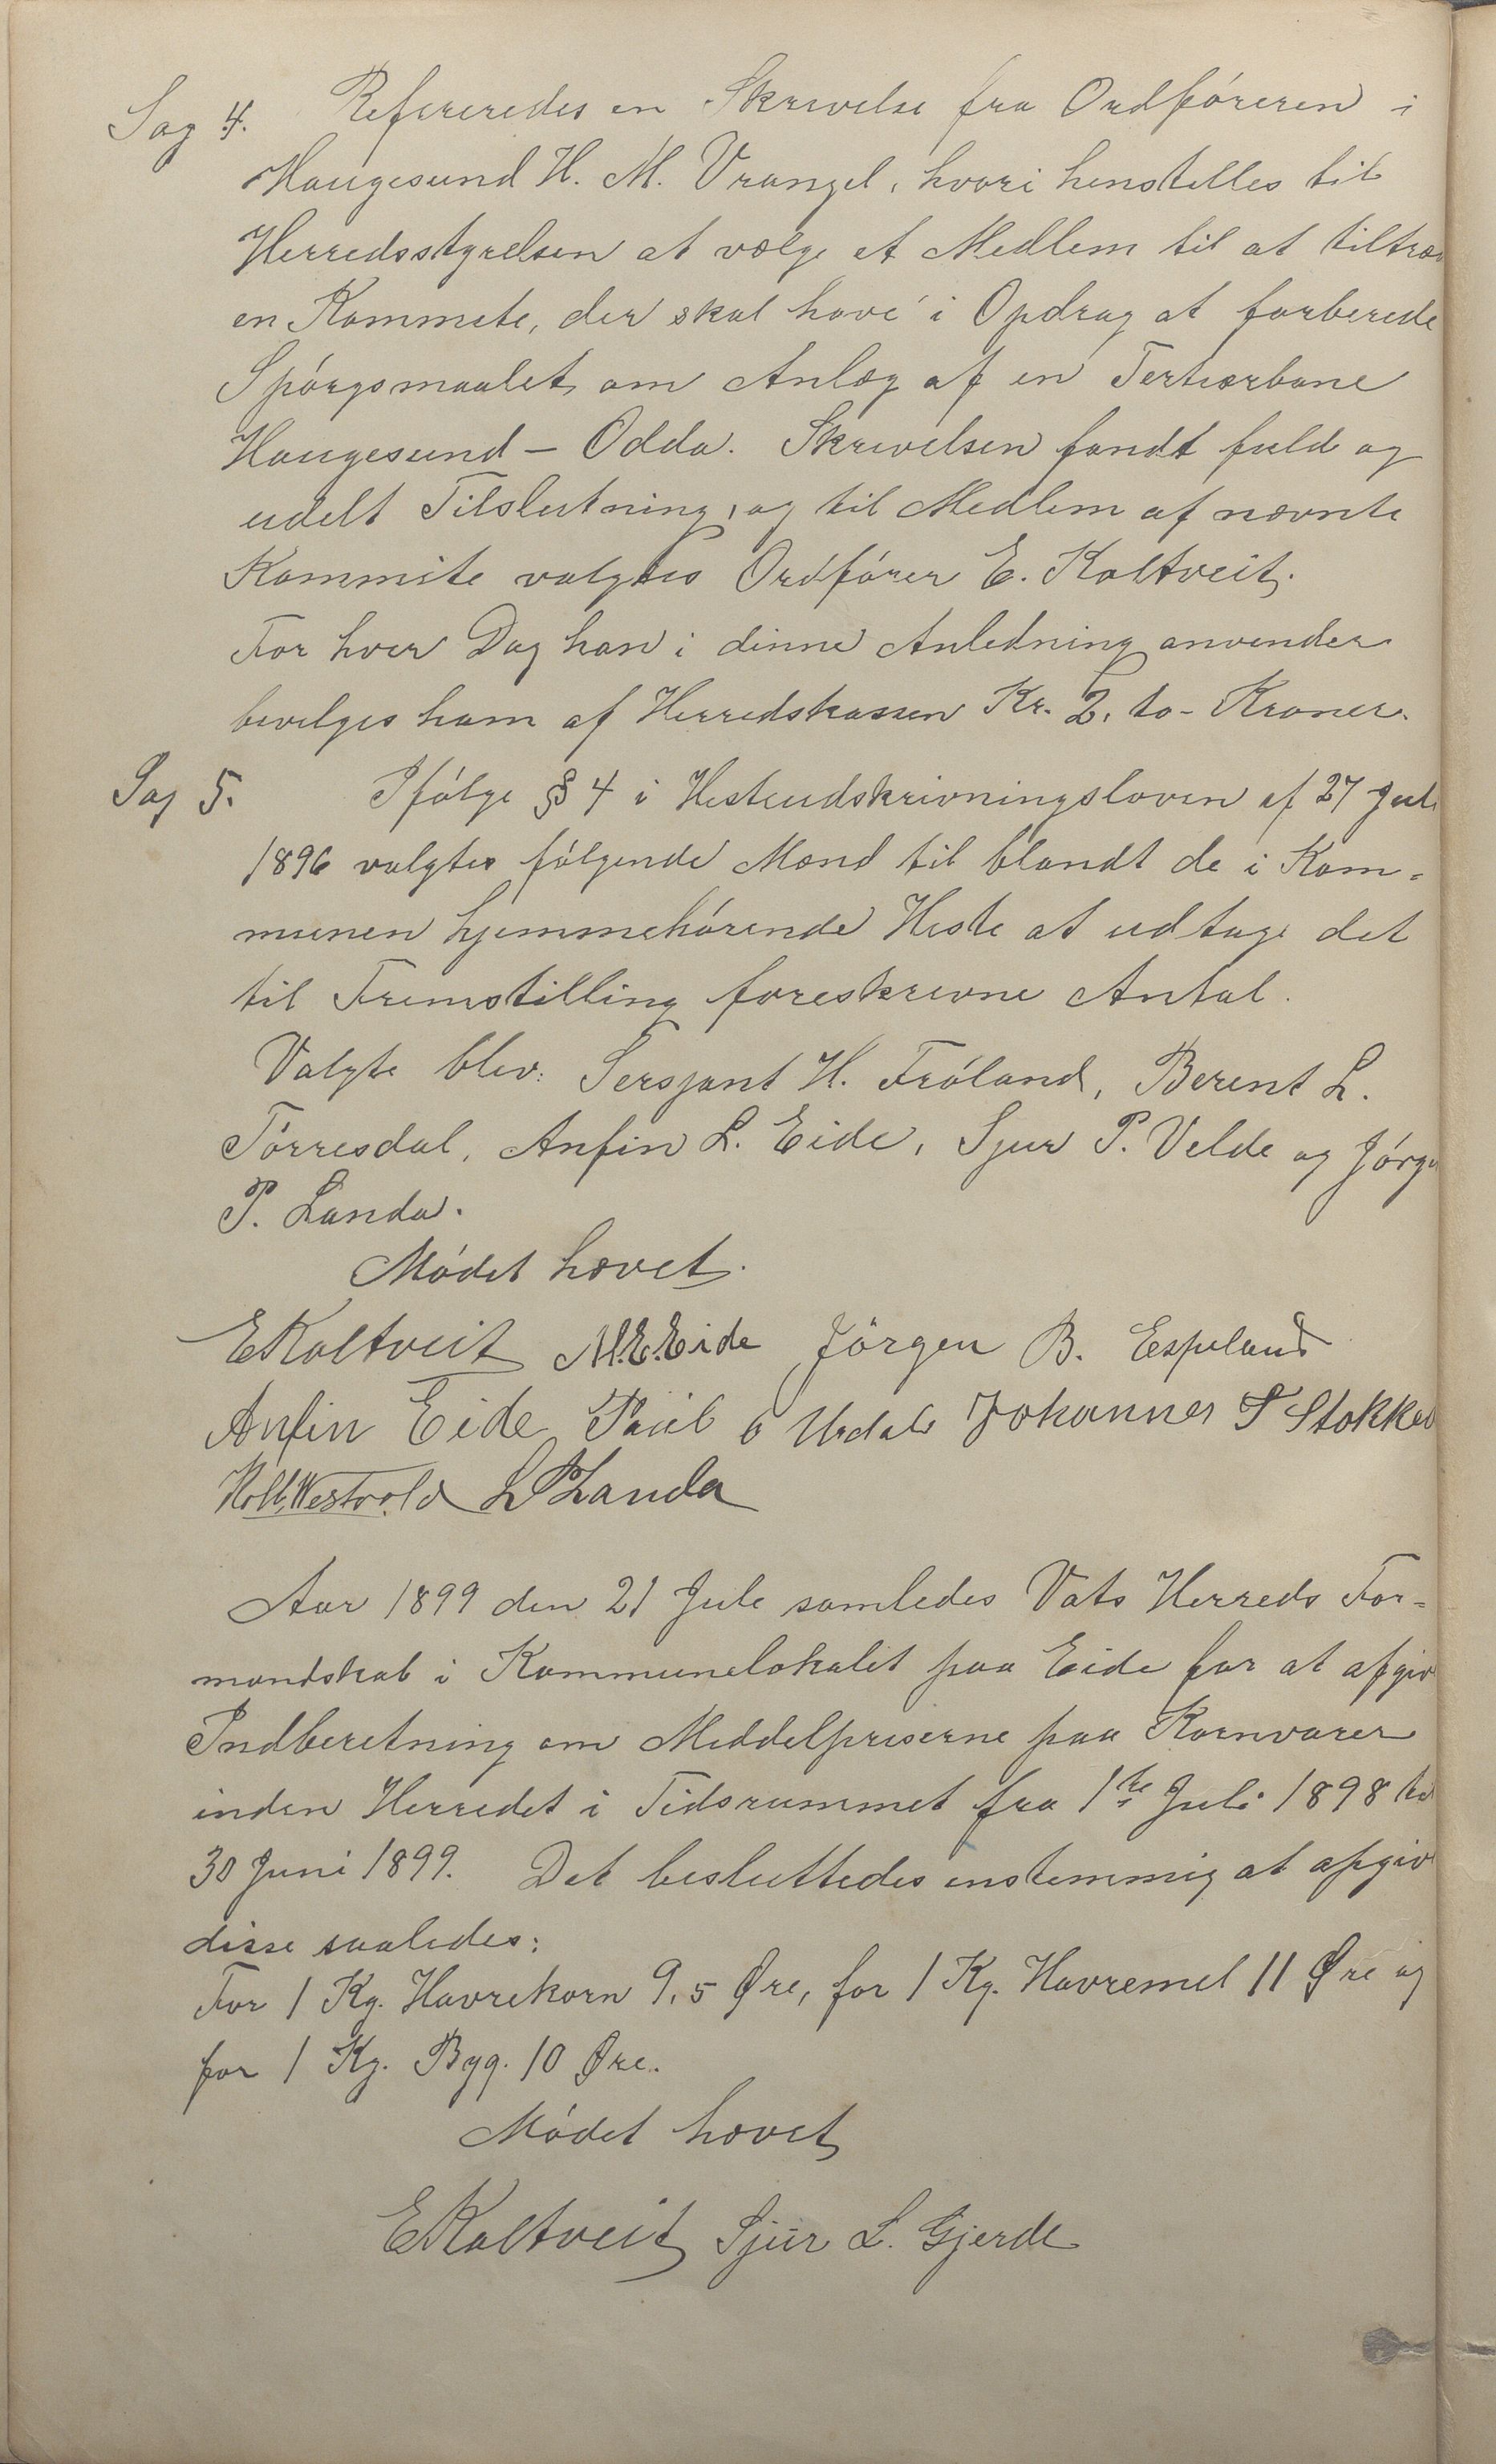 Sag 4. Refereredes en Skrivelse fra Ordføreren i
Haugesund H. M. Vrangel, hvori henstilles til
Herredsstyrelsen at vælge et Medlem til at tiltræ
en Kommete, der skal have i Opdrag at forberede
Spørgsmaalet om Anlæg af en Tertiærbane
Haugesund – Odda. Skrivelsen fandt fuld og
udelt Tilslutning, og til Medlem af nævnte
Kommite valgtes Ordfører E. Kaltveit.
For hver Dag han i denne Anledning anvender
bevilges ham af Herredskassen Kr. 2, to - Kroner.
Sag 5. Ifølge § 4 i Hesteudskrivningsloven af 27 Juli
1896 valgtes følgende Mænd til blandt de i Kom=
munen hjemmehørende Heste at udtage det
til Fremstilling foreskrevne Antal.
Valgte blev: Sersjant H. Frøland, Berent L.
Tørresdal, Anfin L. Eide, Sjur P. Velde og Jørge
P. Landa.
Mødet hævet.
EKaltveit M.E.Eide Jörgen B. Espeland
Anfin Eide Paul O Urdal Johannes T Stokke
Westvold L P Landa
Aar 1899 den 21 Jule samledes Vats Herreds For=
mandskab i Kommunelokalet paa Eide for at afgiv
Indberetning om Middelpriserne paa Kornvarer
inden Herredet i Tidsrummet fra 1ste Juli 1898 til
30 Juni 1899. Det besluttedes enstemmig at afgiv
disse saaledes:
For 1 Kg. Havrekorn 9,5 Øre, for 1 Kg. Havremel 11 Øre og
for 1 Kg. Byg. 10 Øre.
Mødet hævet
EKaltveit Sjur L. Gjerde